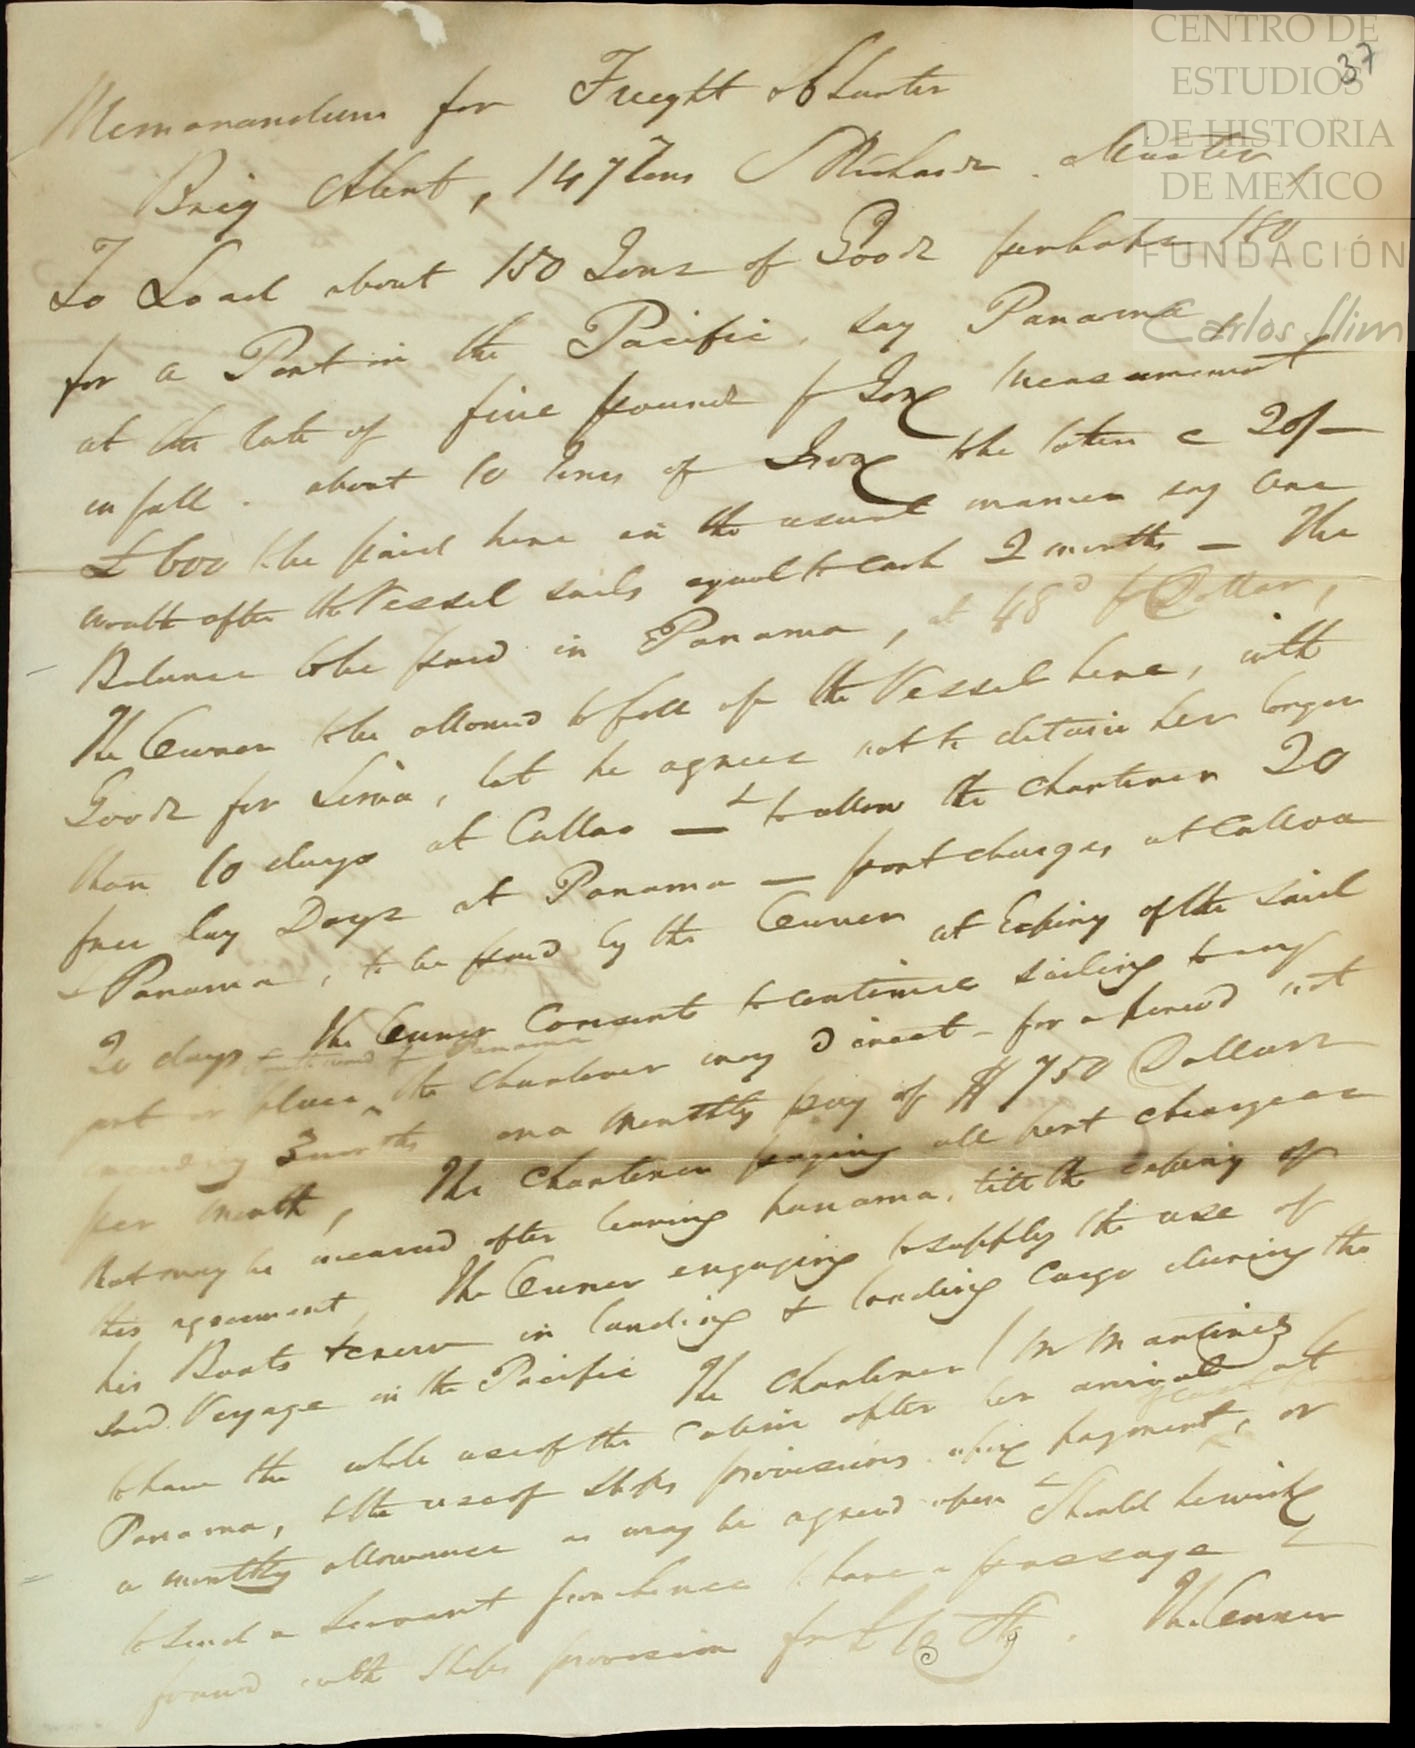 CENTRO DE
ESTUDIOS
DE HISTORIA
DE MEXICO
FUNDACIÓN
Carlos Slim
37
Memorandum for Freight of Charter
Brig Alert, 147 Tons Master
To Load about 150 Tons of Goods perhaps 180
for a Port in the Pacific, say Panama
at the rate of five pounds p Ton Measurement
in full. about 10 Tons of Iron to be taken @ 20/-
£600 to be paid here in the usual manner say one
month after the Vessel sails equal to cash 2 months — The
Balance to be paid in Panama, at 48d p Dollar,
The Owner to be allowed to fill up the Vessel here, with
Goods for Lima, but he agrees not to detain her longer
than 10 days at Callao — & to allow the Charterer 20
free lay Days at Panama — port charges, at Callao
& Panama, to be paid by the Owner at Expiry of the said
20 days — The Owner Consents to continue sailing to any
port or place the Charterer may Direct — for a period not
exceeding 3 months on a Monthly pay of $750 Dollars
per Month, The Charterer paying all port charges
that may be incurred after leaving panama, till the expiry of
this agreement, The Owner engaging to supply the use of
his Boats & crew in landing & loading Cargo during the
said Voyage in the Pacific The Charterer (Mr Martinez)
to have the whole use of the Cabin after her arrival at
Panama, & the use of Ships provisions upon payment, or
a monthly allowance as may be agreed upon & Should he wish
to send a Servant from hence to have a passage &
found with Ships provision for £ Stg. The Owner